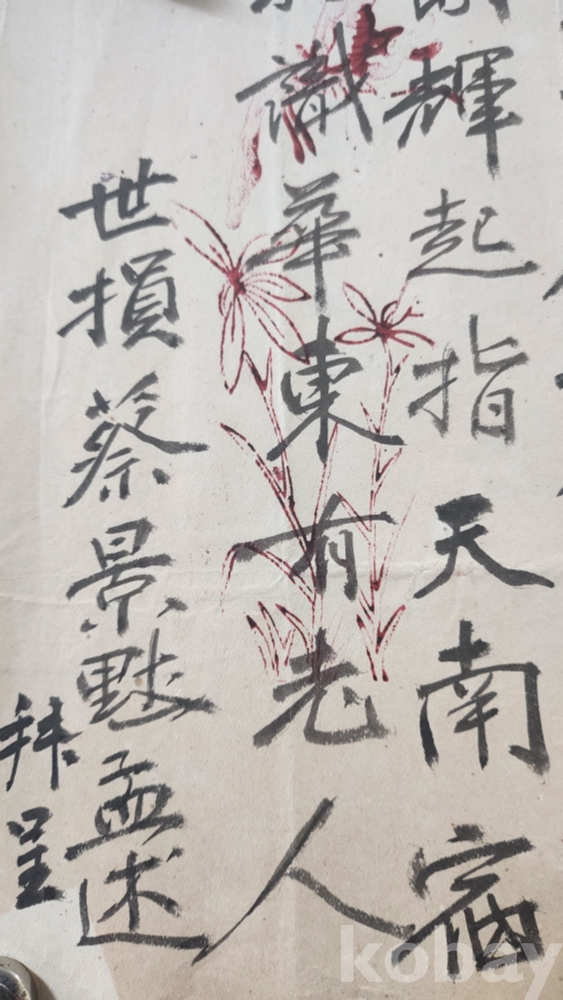 輝起指天南宿
識華東有老人
世損蔡景默孟述
拜呈
kobay